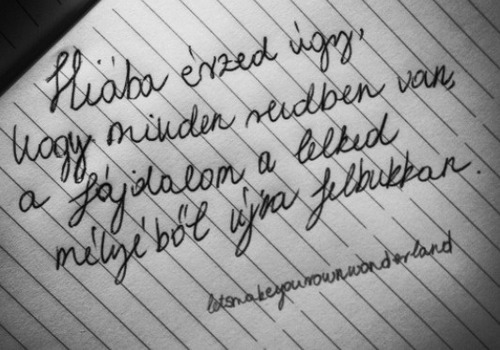 Hiába érzed úgy,
hogy minden rendben van,
a fájdalom a lelked
mélyéből újra felbukkan.
letsmakeyourownwonderland